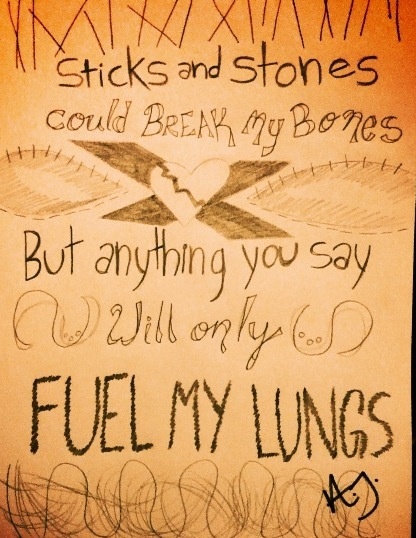 Sticks and Stones
could BREAK my Bones
But anything you say
Will only
FUEL MY LUNGS
A.J.